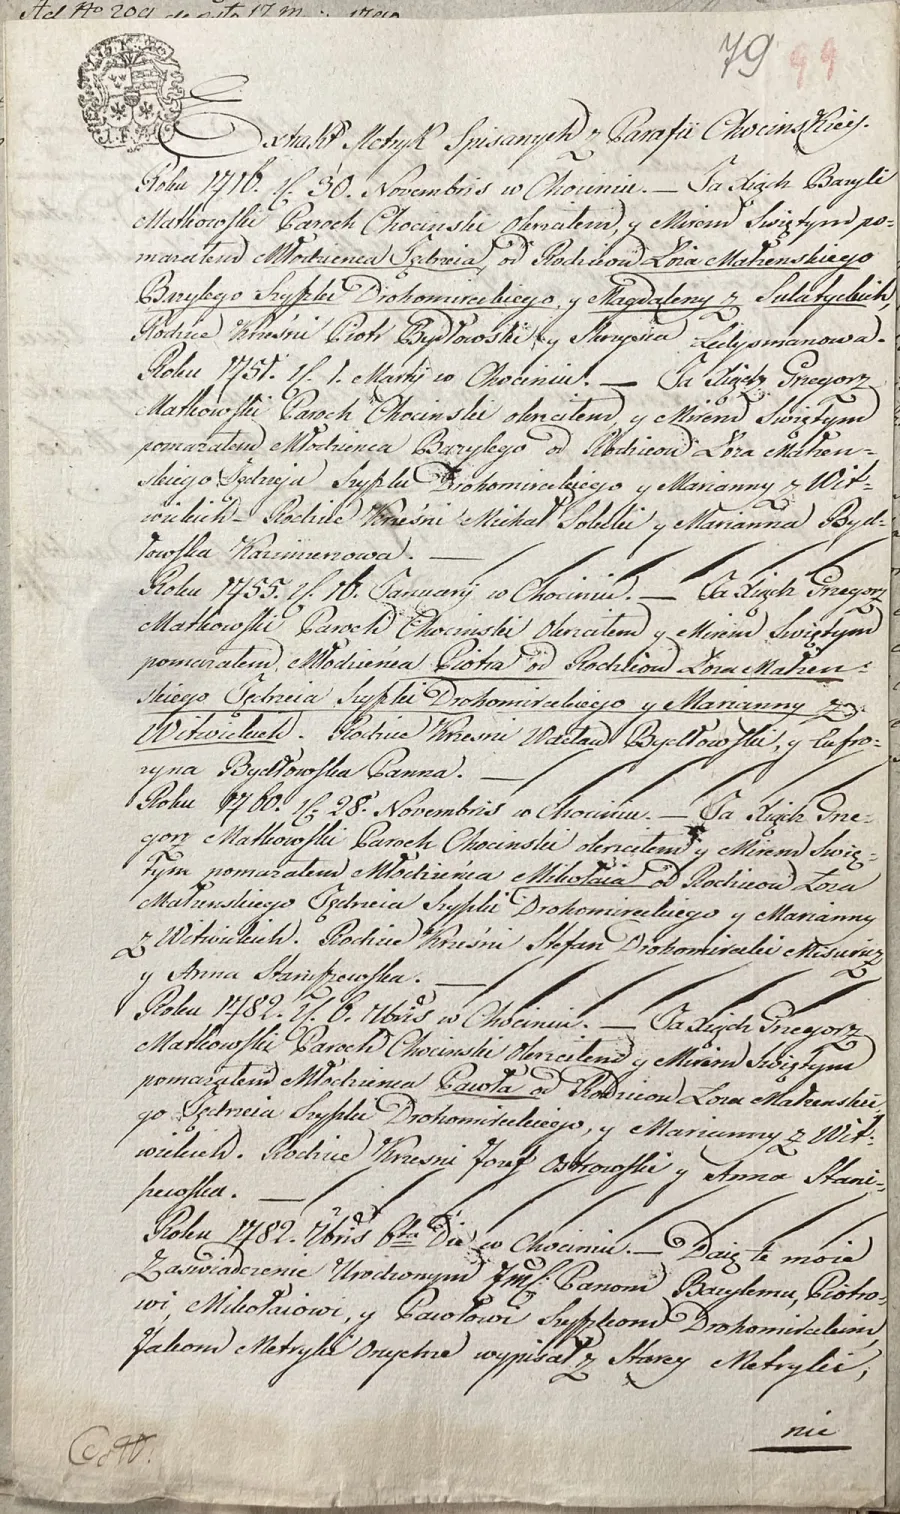 Ad No 209 de
79
99
Extrakt Metryk Spisanych z Parafii Chocinskiey.
Roku 1716. d. 30. Novembris w Chociniu. — Ja Xiądz Bazyli
Matkowski Paroch Chocinski okrzciłem, y Mirem Swiętym po-
mazałem Młodzienca Jędrzeia, od Rodzicow Łoza Małzenskiego
Bazylego Szypki Drohomireckiego, y Magdaleny z Sulatyckich,
Rodzice Krzesni Piotr Bydłowski y
Roku 1751. d. 1. Martij w Chociniu. — Ja Xiądz Grzegorz
Matkowski Paroch Chocinski okrzciłem, y Mirem Swiętym
pomazałem Młodzienca Bazylego od Rodzicow Łoza Małzen-
skiego Jędrzeja Szypki Drohomireckiego y Marianny z Wit-
wickich – Rodzice Krzesni Michał y Marianna Byd-
łowska Kazimierzowa. —
Roku 1755. d. 16. January w Chociniu. — Ja Xiądz Grzegorz
Matkowski Paroch Chocinski Okrzciłem y Mirem Swiętym
pomazałem, Młodzienca Piotra od Rodzicow Łoza Małzen-
skiego Jędrzeia Szypki Drohomireckiego y Marianny z
Witwickich. Rodzice Krzesni Wacław Bydłowski, y Eufro-
zyna Bydłowska Panna. —
Roku 1760. d. 28. Novembris w Chociniu. — Ja Xiądz Grze-
gorz Matkowski Paroch Chocinski okrzciłem y Mirem Swię-
tym pomazałem Młodzienca Mikołaia od Rodzicow Łoza
Małzenskiego Jędrzeia Szypki Drohomireckiego y Marianny
z Witwickich. Rodzice Krzesni Stefan Drohomirecki
y Anna Staniszewska. —
Roku 1782. d. 6. w Chociniu. — Ja Xiądz Grzegorz
Matkowski Paroch Chocinski Okrzciłem y Mirem Swiętym
pomazałem Młodzienca Pawła od Rodzicow Łoza Małzenskie
go Jędrzeia Szypki Drohomireckiego, y Marianny z Wit-
wickich. Rodzice Krzesni Jozef Ostrowski y Anna Stani-
szewska. —
Roku 1782. 6ta Die w Chociniu. — Daię te moie
Zaswiadczenie Urodzonym Panom Bazylemu, Piotro-
wi, Mikołaiowi, y Pawłowi Szypkom Drohomireckim,
Jakom Metryki Onychze wypisał z Starey Metryki,
nie